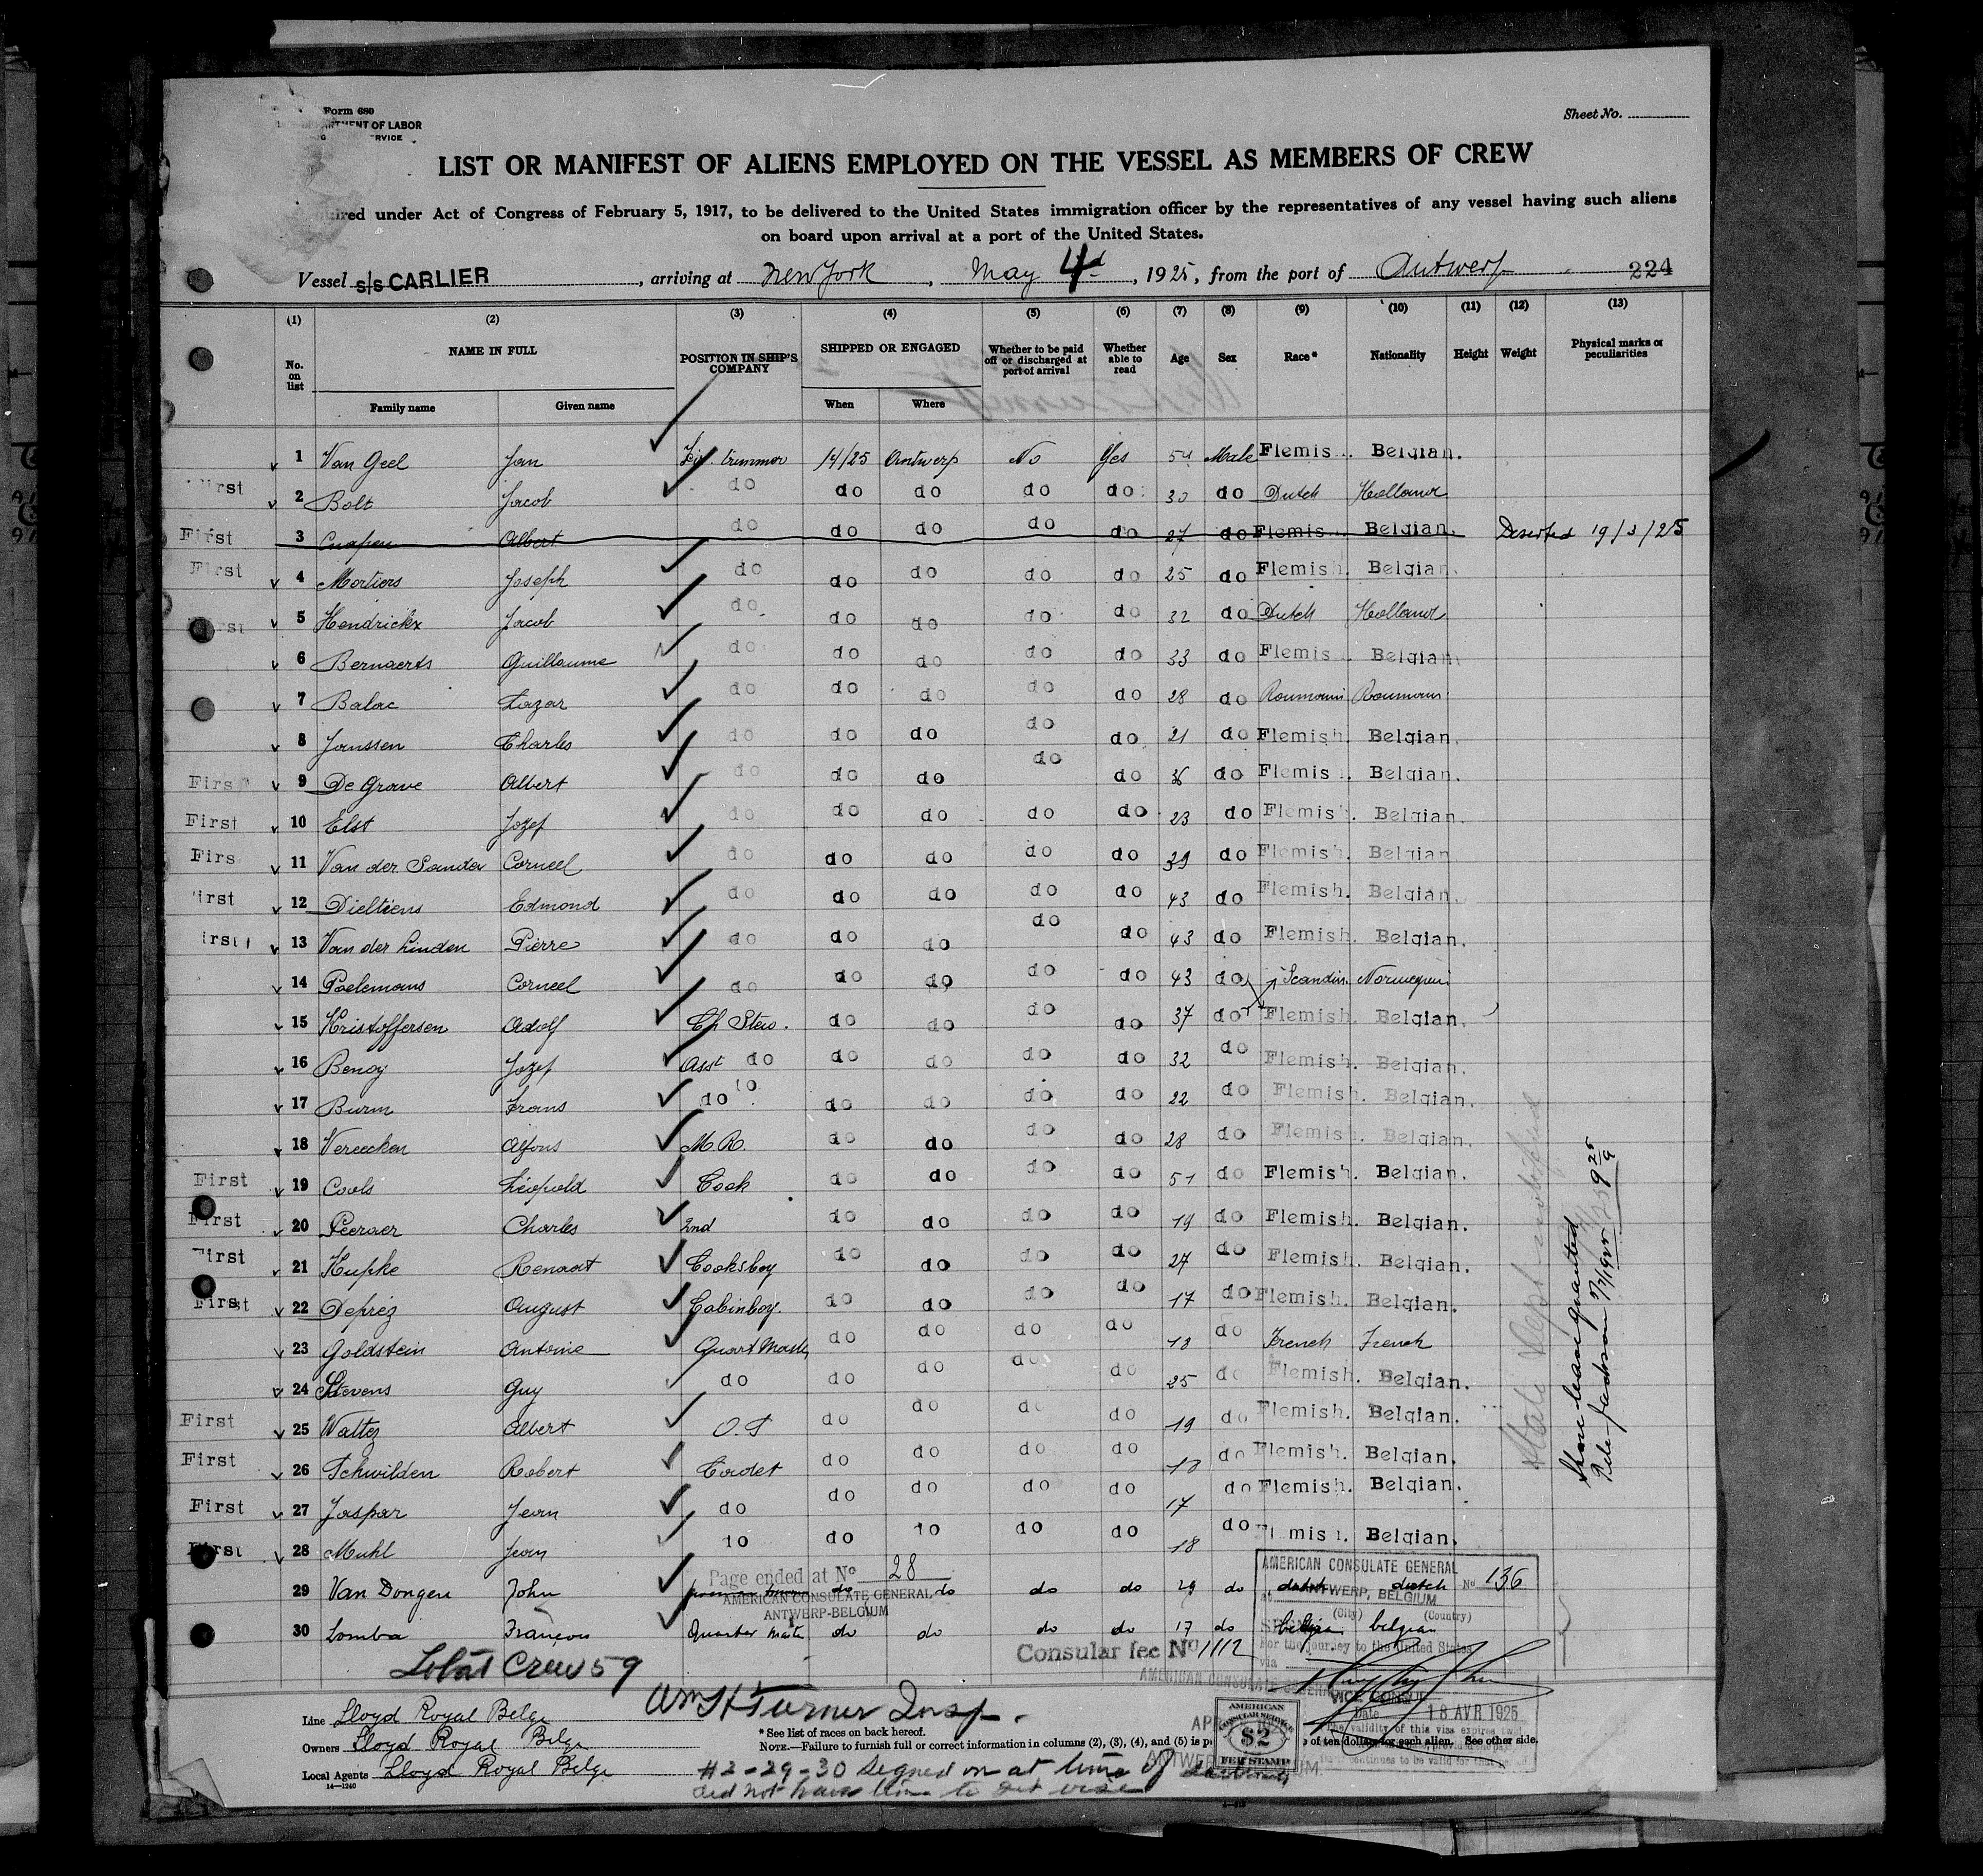 Form 680
OF LABOR
Sheet No.
LIST OR MANIFEST OF ALIENS EMPLOYED ON THE VESSEL AS MEMBERS OF CREW
under Act of Congress of February 5, 1917, to be delivered to the United States immigration officer by the representatives of any vessel having such aliens
on board upon arrival at a port of the United States.
Vessel s/s CARLIER, arriving at New York, May 4, 1925, from the port of Antwerp 224
(1) (2) (3) (4) (5) (6) (7) (8) (9) (10) (11) (12) (13)
No. on list NAME IN FULL POSITION IN SHIP'S COMPANY SHIPPED OR ENGAGED Whether to be paid off or discharged at port of arrival Whether able to read Age Sex Race* Nationality Height Weight Physical marks or peculiarities
Family name Given name When Where
1 Van Geel Jan trimmer 14/25 Antwerp No Yes 54 Male Flemis Belgian.
2 Bolt Jacob do do do do do 30 do Dutch Holland
First 3 Albert do do do do do 27 do Flemis Belgian. Deserted 19/3/25
First 4 Mortiers Joseph do do do do do 25 do Flemish. Belgian.
5 Hendrickx Jacob do do do do do 32 do Dutch Holland
6 Bernaerts Guillaume do do do do do 33 do Flemis Belgian
7 Balac Lazar do do do do do 28 do Roumain Roumain
8 Janssen Charles do do do do do 21 do Flemish. Belgian.
Firs 9 De Grave Albert do do do do do 36 do Flemis Belgian.
First 10 Elst Jozef do do do do do 23 do Flemish. Belgian.
Firs 11 Van der Sanden Corneel do do do do do 39 do Flemish. Belgian
irst 12 Dieltiens Edmond do do do do do 43 do Flemish. Belgian.
irst 13 Van der Linden Pierre do do do do do 43 do Flemish. Belgian.
14 Poelemans Corneel do do do do do 43 do Scandin. Norwegian
15 Kristoffersen Adolf Ch Stew. do do do do 37 do Flemish. Belgian.
16 Benoy Jozef Asst do do do do do 32 do Flemish. Belgian.
17 Burm Frans do do do do do 22 do Flemish. Belgian.
18 Vereecken Alfons M.R. do do do do 28 do Flemish. Belgian.
First 19 Cools Léopold Cook do do do do 51 do Flemish. Belgian.
First 20 Peeraer Charles 2nd do do do do 19 do Flemish. Belgian.
First 21 Hupke Renaat Cooksboy do do do do 27 do Flemish. Belgian.
First 22 Depréz August Cabinboy do do do do 17 do Flemish. Belgian.
23 Goldstein Antoine Quart Mast do do do do 18 do French French
24 Stevens Guy do do do do do 25 do Flemish. Belgian.
First 25 Waltez Albert O.S do do do do 19 do Flemish. Belgian.
First 26 Schwilden Robert Cadet do do do do 18 do Flemish. Belgian.
First 27 Jaspar Jean do do do do do 17 do Flemish. Belgian.
First 28 Muhl Jean do do do do 18 do Belgian.
Page ended at No 28
29 Van Dongen John do do do do 29 do dutch dutch
AMERICAN CONSULATE GENERAL
ANTWERP-BELGIUM
30 Lomba François Quarter Mate do do do do 17 do belgian belgian
AMERICAN CONSULATE GENERAL
No 136
at ANTWERP, BELGIUM
(City) (Country)
For the journey to the United States
via
VICE CONSUL
Date 18 AVR 1925
Consular fee No 1112
AMERICAN CONSULATE GENERAL
Shore leave granted
Total Crew 59
Wm H Turner Insp.
Line Lloyd Royal Belge
Owners Lloyd Royal Belge
Local Agents Lloyd Royal Belge
14—1240
* See list of races on back hereof.
NOTE.—Failure to furnish full or correct information in columns (2), (3), (4), and (5) is of ten dollars for each alien. See other side.
AMERICAN
CONSULAR SERVICE
$2
FEE STAMP
#2-29-30 Signed on at time of
did not have time to get vise